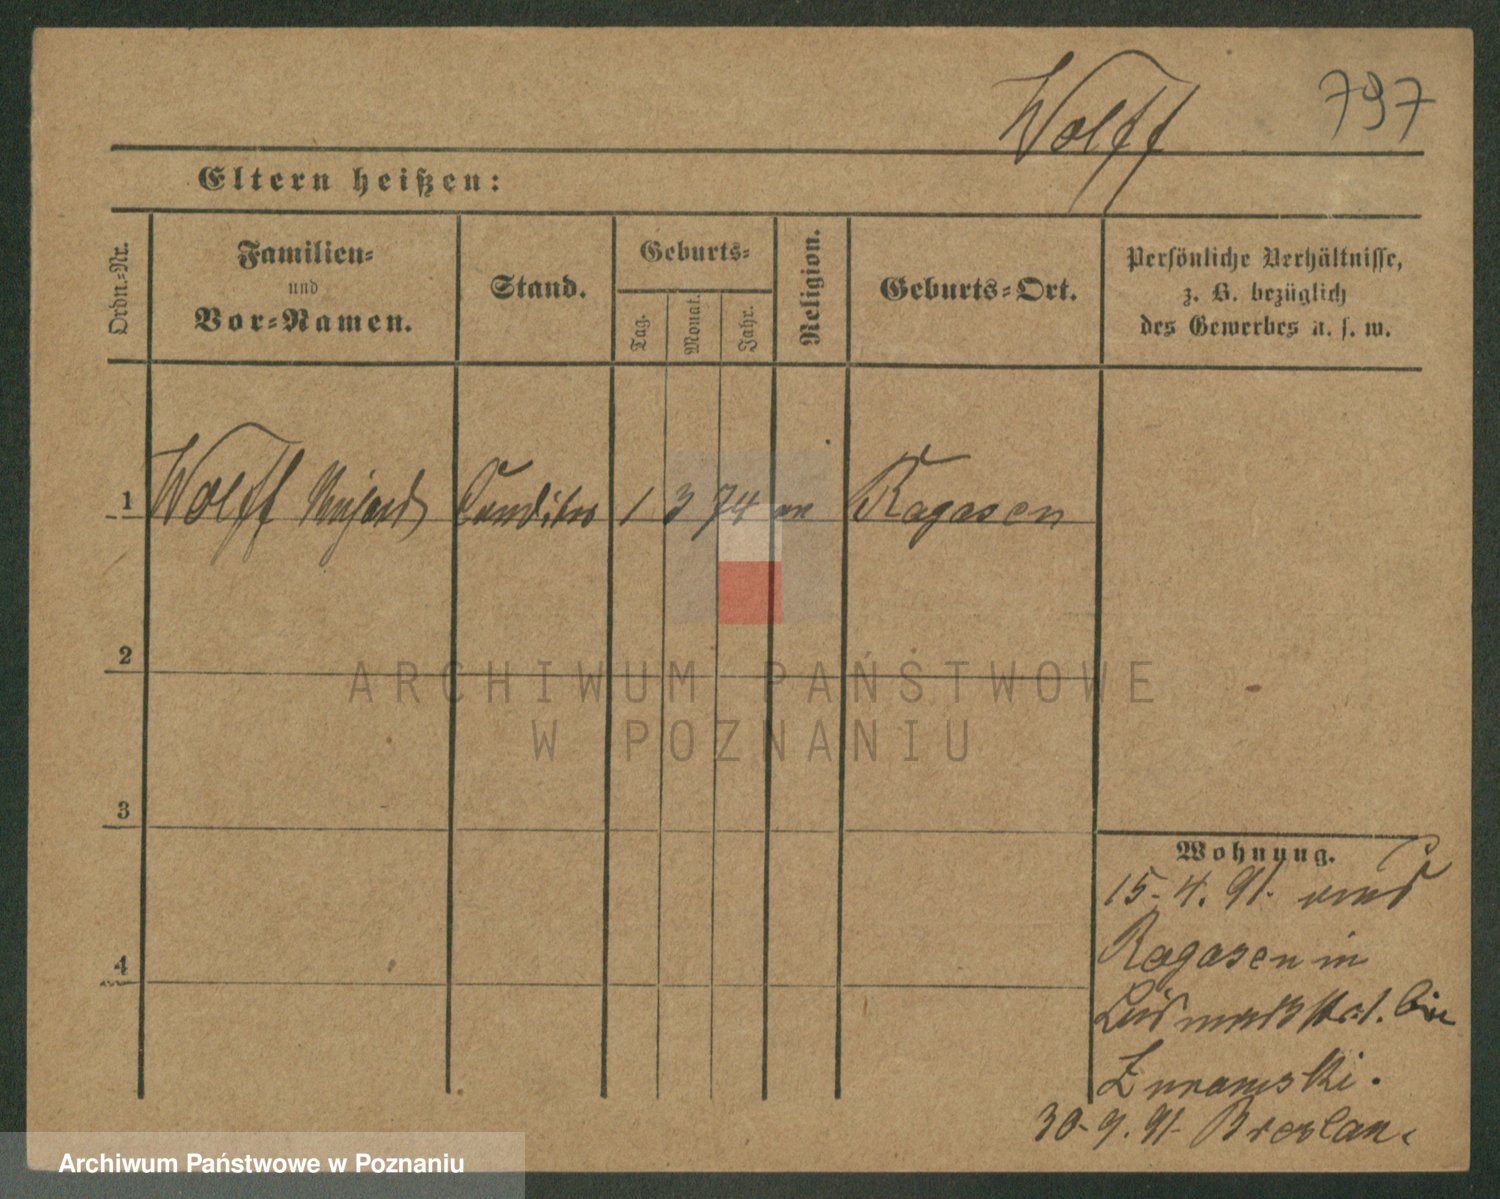 Wolff 797
Eltern heißen:
Ordn.-Nr.
Familien-
und
Vor-Namen.
Stand.
Geburts-
Tag.
Monat.
Jahr.
Religion.
Geburts-Ort.
Persönliche Verhältnisse,
z. B. bezüglich
des Gewerbes u. s. w.
1 Wolff Conditor 1 3 74 Rogasen
2
ARCHIWUM PAŃSTWOWE
W POZNANIU
3
Wohnung.
15. 4. 91.
4
Rogasen in
Zurawski.
30. 9. 91. Breslau.
Archiwum Państwowe w Poznaniu